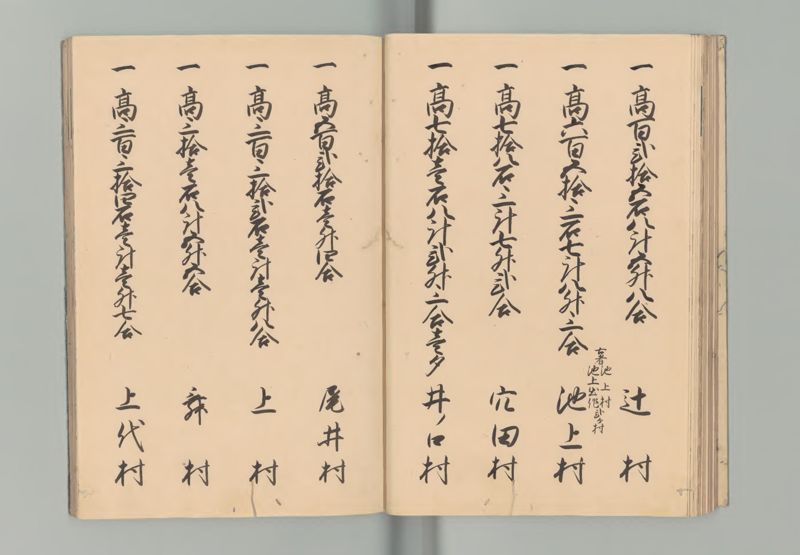 一 高百弐拾五石八斗五升八合 辻村
一 高六百五拾三石七斗八升三合 池上村
池上村
池上出作弐ケ村
一 高七拾八石三斗七升弐合 穴田村
一 高七拾壱石八斗弐升三合壱夕 井ノ口村
一 高五百弐拾石壱升四合 尾井村
一 高三百三拾弐石壱斗壱升八合 上村
一 高三拾壱石八斗五升五合 村
一 高三百三拾四石壱斗壱升七合 上代村